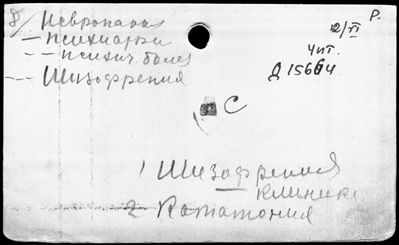 P.
8/ Невропатол
12/VI
— психиатри
Чит.
— — психич болез
Д 15664
— — Шизофрения
С
1 Шизофрения
клиника
2 Кататония